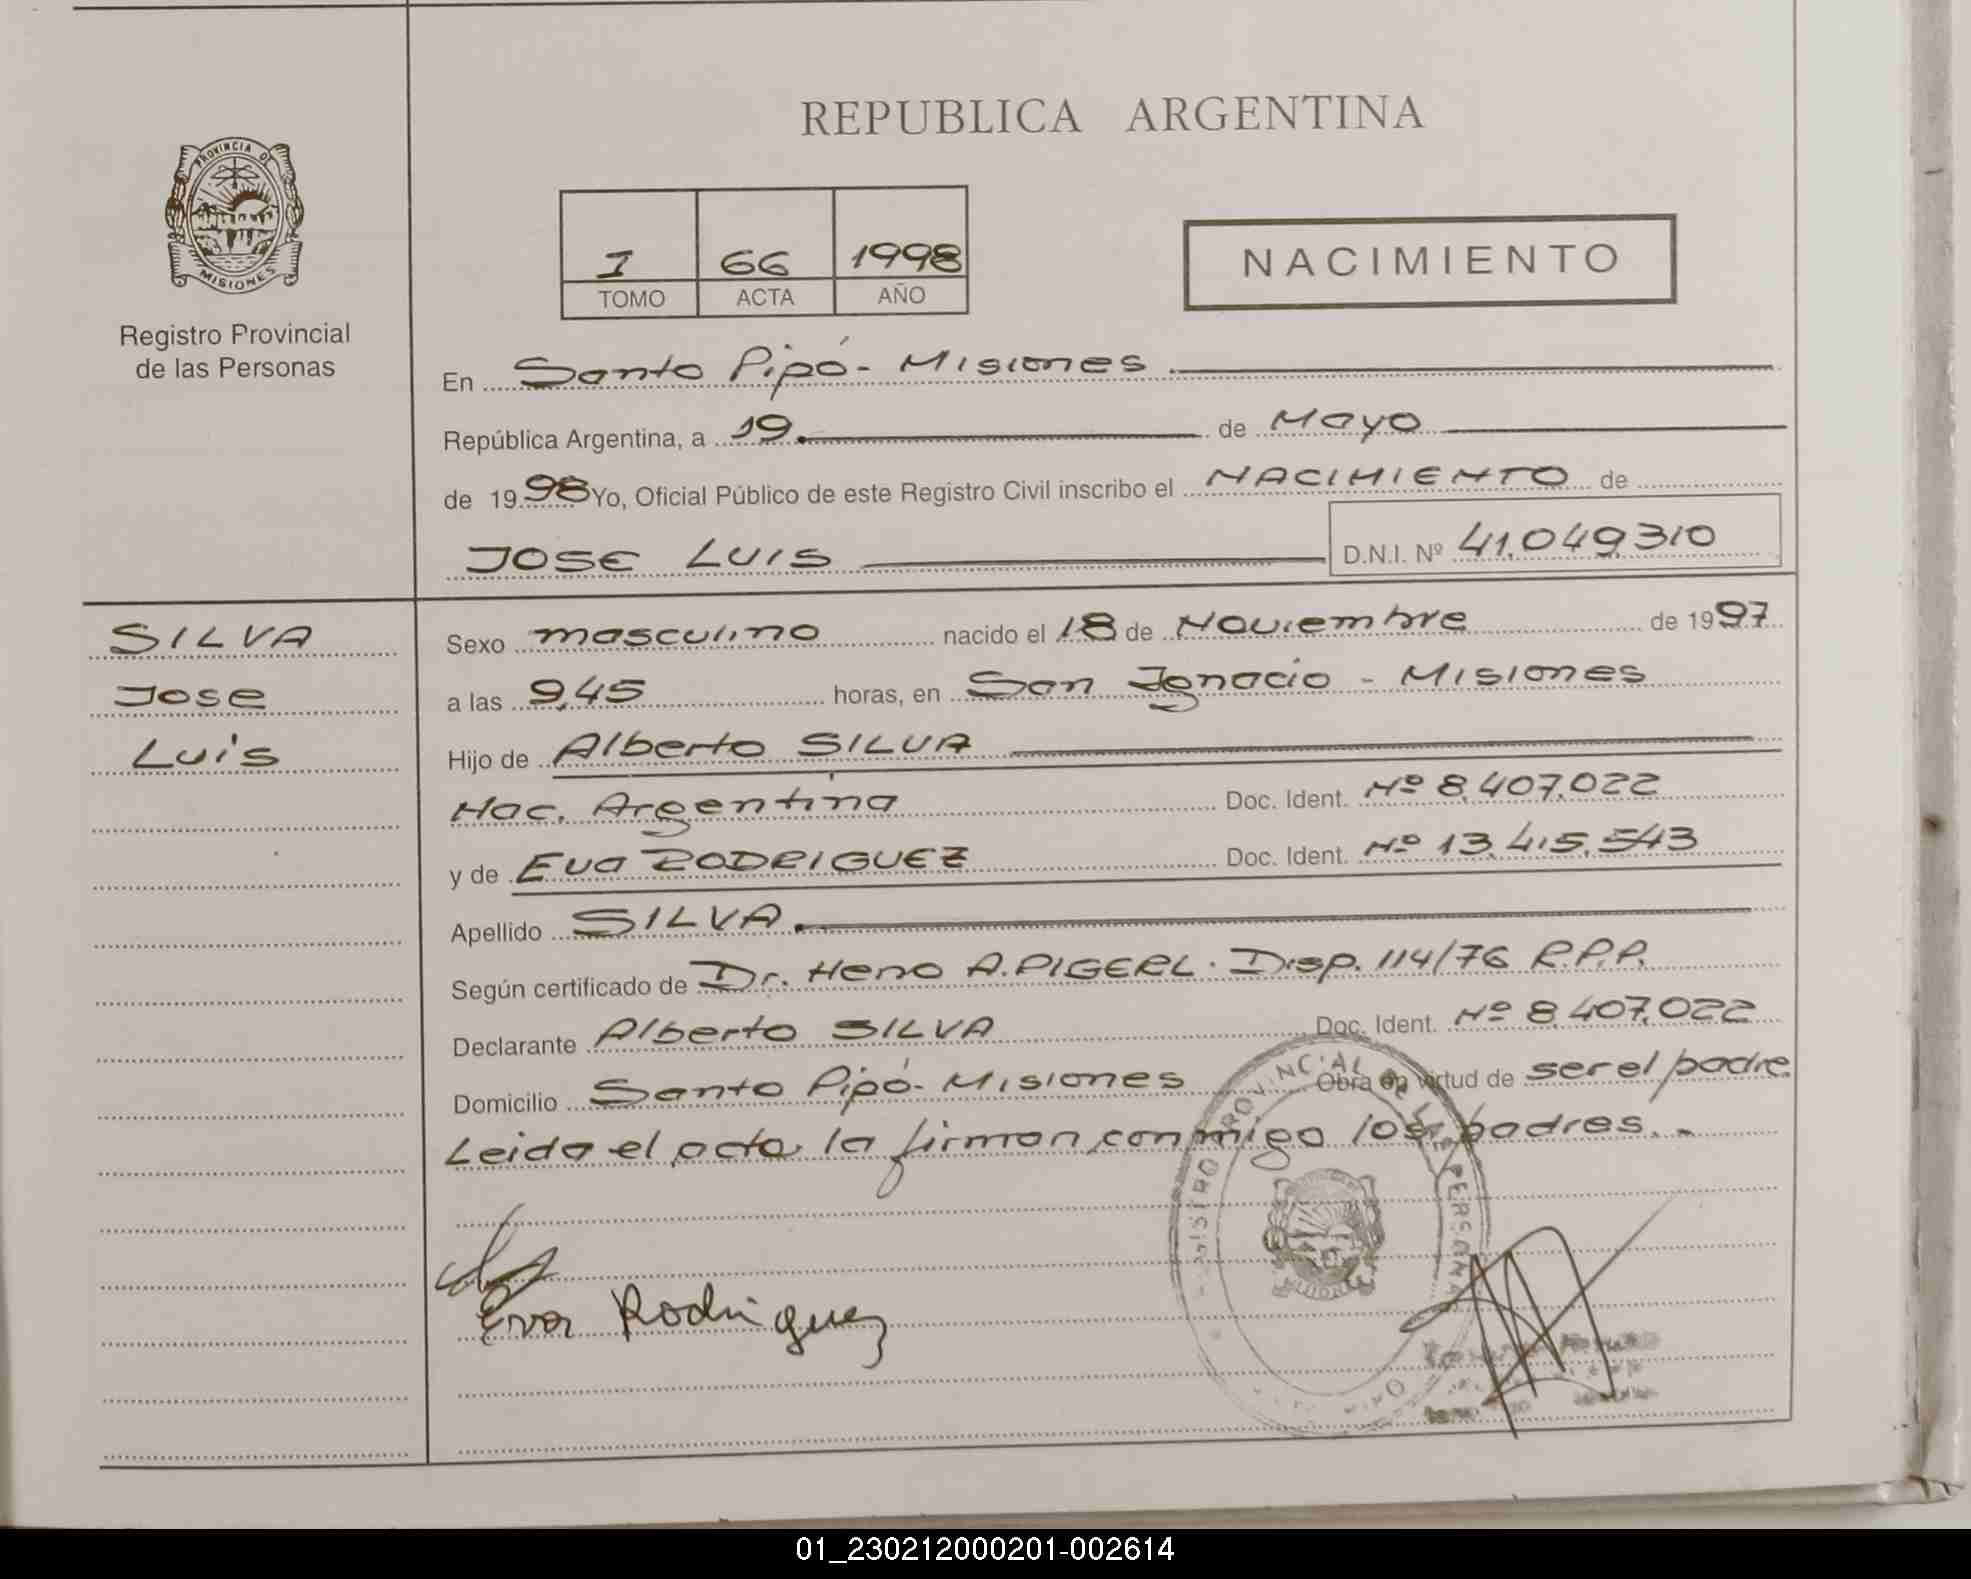 REPUBLICA ARGENTINA
PROVINCIA DE
MISIONES
Registro Provincial
de las Personas
I 66 1998
TOMO ACTA AÑO
NACIMIENTO
En Santo Pipó - Misiones
República Argentina, a 19 de Mayo
de 1998 Yo, Oficial Público de este Registro Civil inscribo el NACIMIENTO de
JOSE LUIS D.N.I. Nº 41.049.310
SILVA
Jose
Luis
Sexo masculino nacido el 18 de Noviembre de 1997
a las 9,45 horas, en San Ignacio - Misiones
Hijo de Alberto SILVA
Nac. Argentina Doc. Ident. Nº 8.407.022
y de Eva RODRIGUEZ Doc. Ident. Nº 13.415.543
Apellido SILVA.
Según certificado de Dr. Heno A. PIGERL. Disp. 114/76 R.P.P.
Declarante Alberto SILVA Doc. Ident. Nº 8.407.022
Domicilio Santo Pipó - Misiones Obra en virtud de ser el padre
Leida el acta la firman conmigo los padres. -
Eva Rodriguez
REGISTRO PROVINCIAL DE LAS PERSONAS
01_230212000201-002614